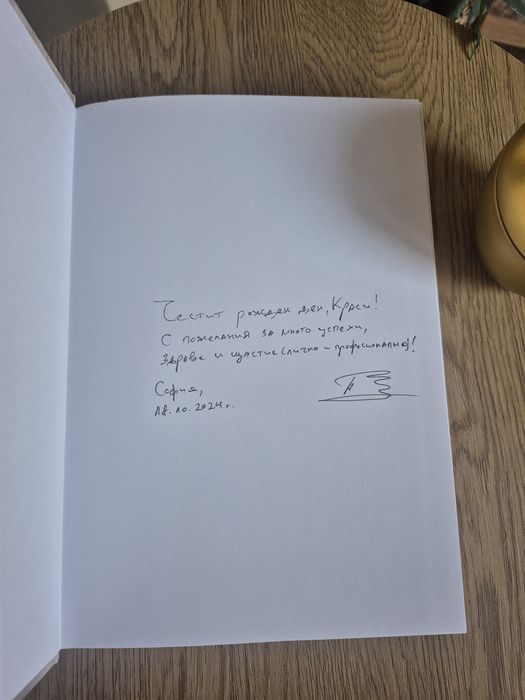 Честит рожден ден, Краси!
С пожелания за много успехи,
здраве и щастие (лично и професионално)!
София,
18.10.2024г.